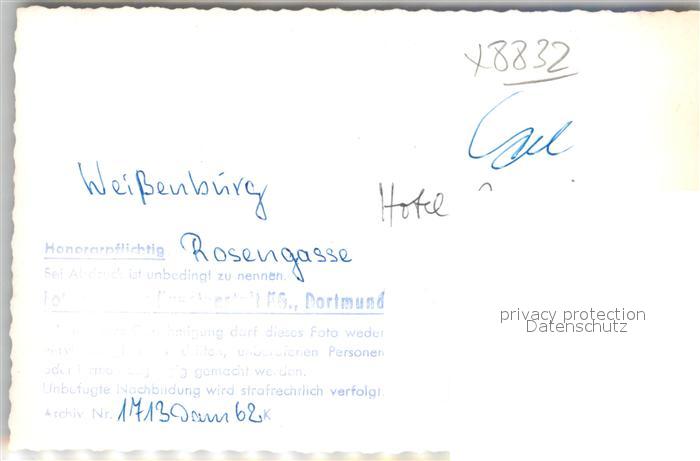 x8832
Weißenburg
Hotel
Rosengasse
Honorarpflichtig
Bei Abdruck ist unbedingt zu nennen.
KG., Dortmund
darf dieses Foto weder
unberufenen Personen
gemacht werden.
Unbefugte Nachbildung wird strafrechtlich verfolgt.
Archiv Nr. 1713 Dam 62 K
privacy protection
Datenschutz